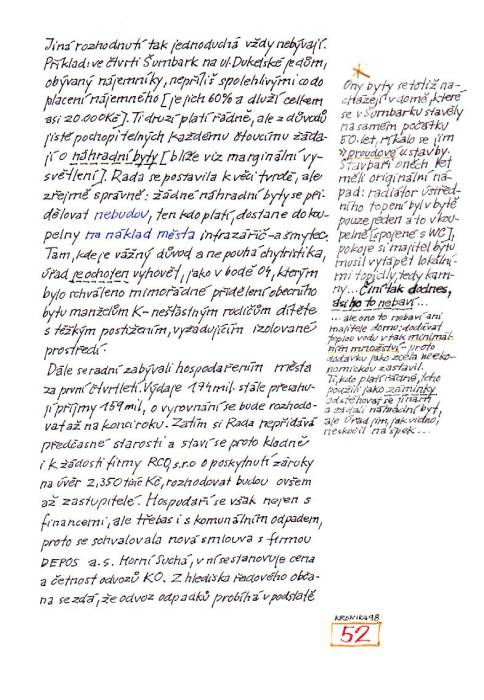 Jiná rozhodnutí tak jednoduchá vždy nebývají.
Příklad: ve čtvrti Šumbark na ul. Dukelské je dům,
obývaný nájemníky, nepříliš spolehlivými co do
placení nájemného [je jich 60% a dluží celkem
asi 20.000Kč]. Ti druzí platí řádně, ale z důvodů
jistě pochopitelných každému čtoucímu žáda-
jí o náhradní byty [blíže viz marginální vy-
světlení]. Rada se postavila k věci tvrdě, ale
zřejmě správně: žádné náhradní byty se při-
dělovat nebudou, ten kdo platí, dostane do kou-
pelny na náklad města infrazářič - a šmytec.
Tam, kde je vážný důvod a ne pouhá chytristika,
úřad je ochoten vyhovět, jako v bodě 04, kterým
bylo schváleno mimořádné přidělení obecního
bytu manželům K - nešťastným rodičům dítěte
s těžkým postižením, vyžadujícím izolované
prostředí.
Dále se radní zabývali hospodařením města
za první čtvrtletí. Výdaje 174 mil. stále přesahu-
jí příjmy 159 mil., o vyrovnání se bude rozhodo-
vat až na konci roku. Zatím si Rada nepřidává
předčasné starosti a staví se proto kladně
i k žádosti firmy RCQ s.r.o o poskytnutí záruky
na úvěr 2,350 tis Kč, rozhodovat budou ovšem
až zastupitelé. Hospodaří se však nejen s
financemi, ale třebas i s komunálním odpadem,
proto se schvalovala nová smlouva s firmou
DEPOS a.s. Horní Suchá, v ní se stanovuje cena
a četnost odvozů KO. Z hlediska řadového obča-
na se zdá, že odvoz odpadků probíhá v podstatě
Ony byty se totiž na-
cházejí v domě, které
se v Šumbarku stavěly
na samém počátku
50. let, říkalo se jim
"proudové" stavby.
Stavbaři oněch let
měli originální ná-
pad: radiátor ústřed-
ního topení byl v bytě
pouze jeden a to v kou-
pelně [spojené s WC],
pokoje si majitel bytu
musil vytápět lokální-
mi topidly, tedy kam-
ny... Činí tak dodnes,
asi ho to nebaví...
... ale ono to nebaví ani
majitele domu: dodávat
teplou vodu v tak minimál-
ním množství - proto
dodávku jako zcela neeko-
nomickou zastavil.
Ti, kdo platí řádně, toho
použili jako záminky
odstěhovat se jinam
a žádali náhradní byt,
ale úřad jim, jak vidno,
neskočil na špek...
KRONIKA 98
52